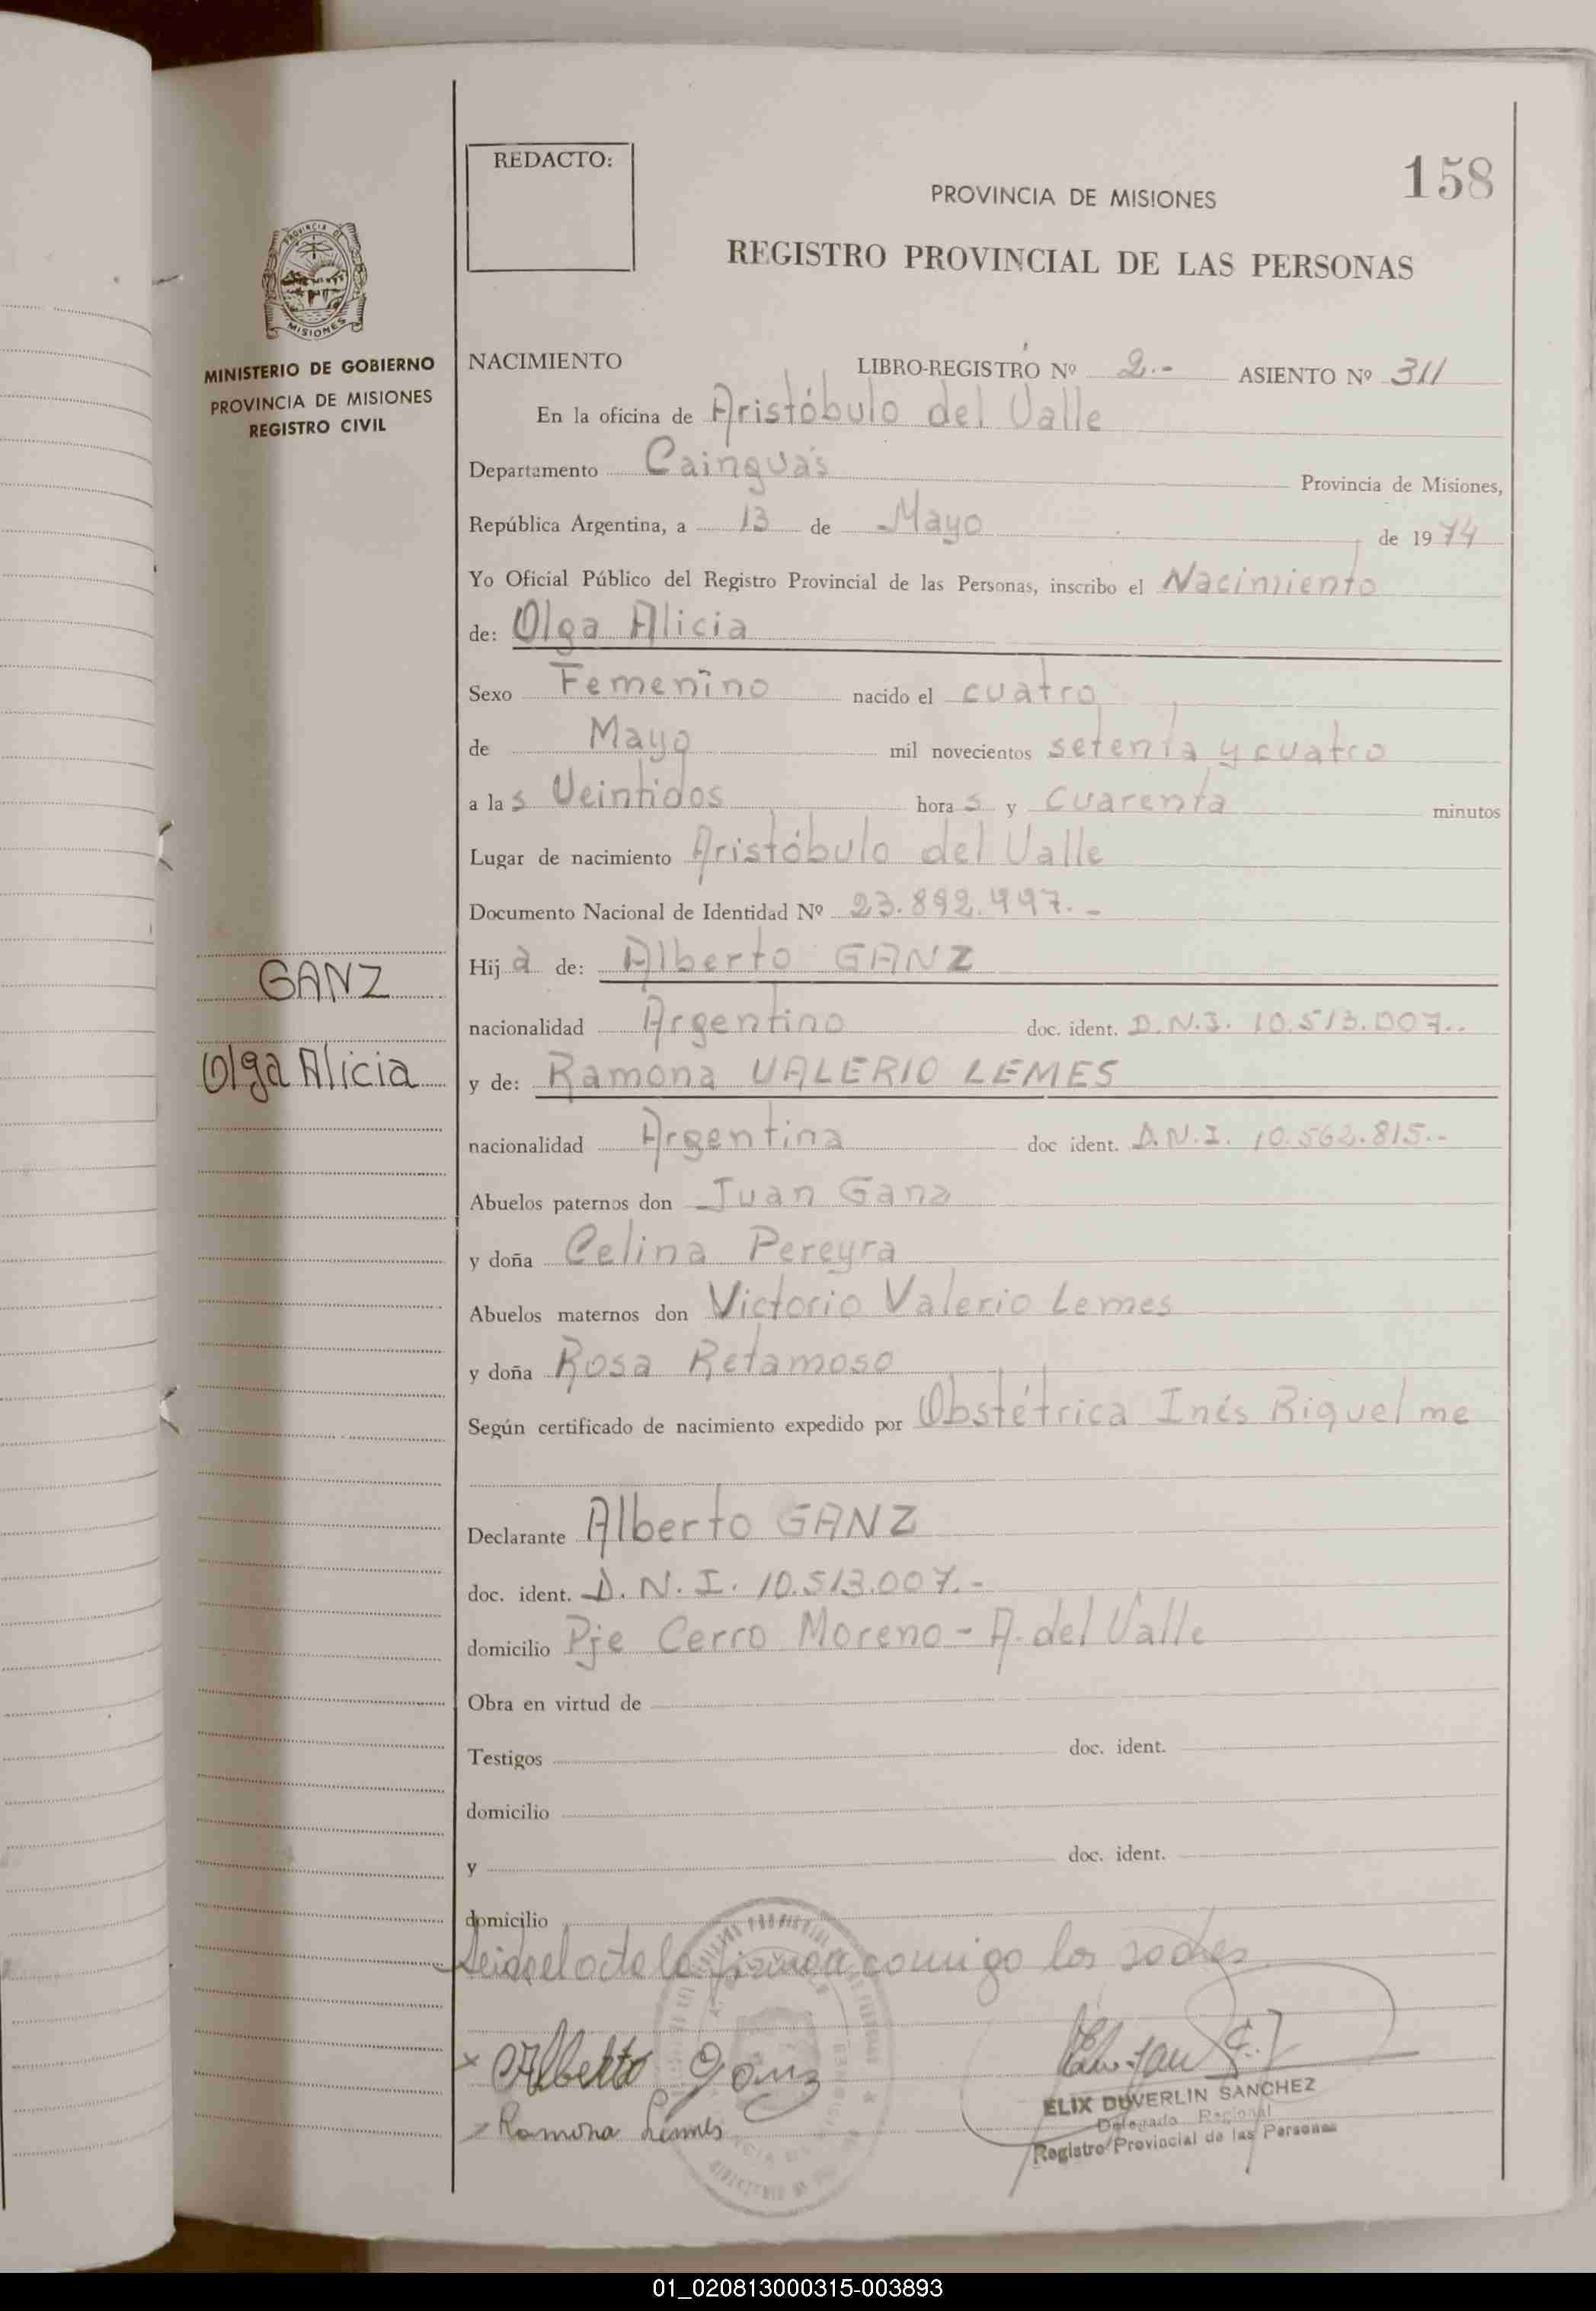 REDACTO:
158
PROVINCIA DE MISIONES
REGISTRO PROVINCIAL DE LAS PERSONAS
PROVINCIA DE
MISIONES
MINISTERIO DE GOBIERNO
PROVINCIA DE MISIONES
REGISTRO CIVIL
NACIMIENTO LIBRO-REGISTRO Nº 2.- ASIENTO Nº 311
En la oficina de Aristóbulo del Valle
Departamento Cainguás Provincia de Misiones,
República Argentina, a 13 de Mayo de 1974
Yo Oficial Público del Registro Provincial de las Personas, inscribo el Nacimiento
de: Olga Alicia
Sexo Femenino nacido el cuatro
de Mayo mil novecientos setenta y cuatro
a las Veintidos horas y Cuarenta minutos
Lugar de nacimiento Aristóbulo del Valle
Documento Nacional de Identidad Nº 23.892.997.-
Hija de: Alberto GANZ
GANZ
nacionalidad Argentino doc. ident. D.N.I. 10.513.007.-
Olga Alicia
y de: Ramona VALERIO LEMES
nacionalidad Argentina doc ident. D.N.I. 10.562.815.-
Abuelos paternos don Juan Ganz
y doña Celina Pereyra
Abuelos maternos don Victorio Valerio Lemes
y doña Rosa Retamoso
Según certificado de nacimiento expedido por Obstétrica Inés Riquelme
Declarante Alberto GANZ
doc. ident. D.N.I. 10.513.007.-
domicilio Pje Cerro Moreno - A. del Valle
Obra en virtud de
Testigos doc. ident.
domicilio
y doc. ident.
domicilio
Leida el acta la firman comigo los
x Alberto Ganz
x Ramona Lemes
ELIX DUVERLIN SANCHEZ
Delegado Regional
Registro Provincial de las Personas
01_020813000315-003893